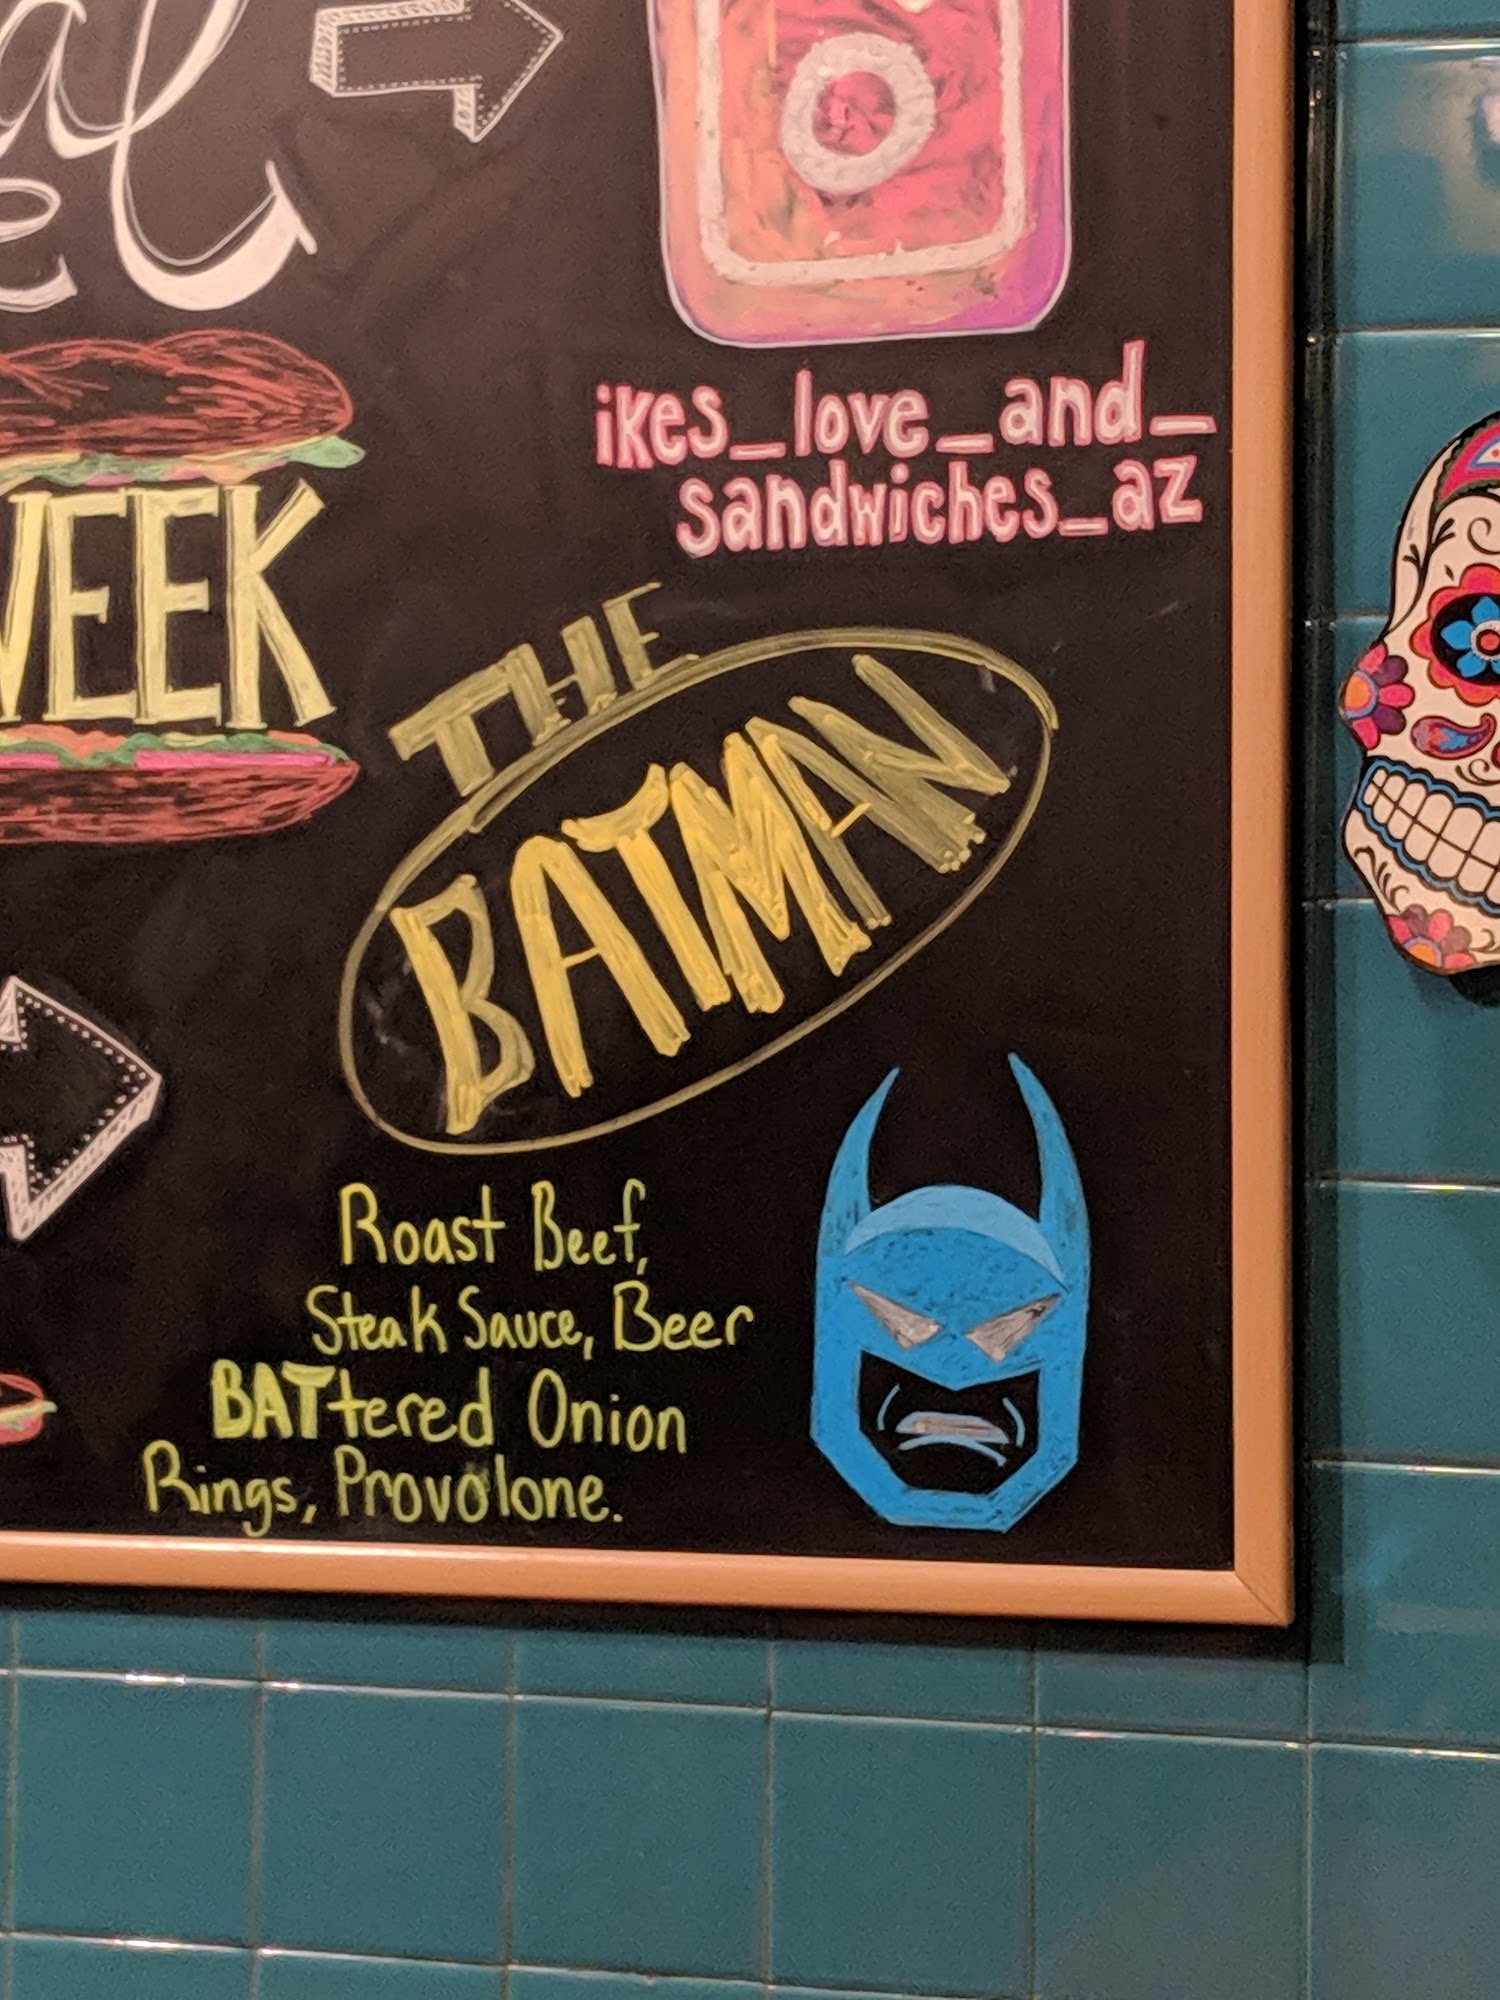 ikes_love_and_
sandwiches_az
THE
BATMAN
Roast Beef,
Steak Sauce, Beer
BATtered Onion
Rings, Provolone.
WEEK